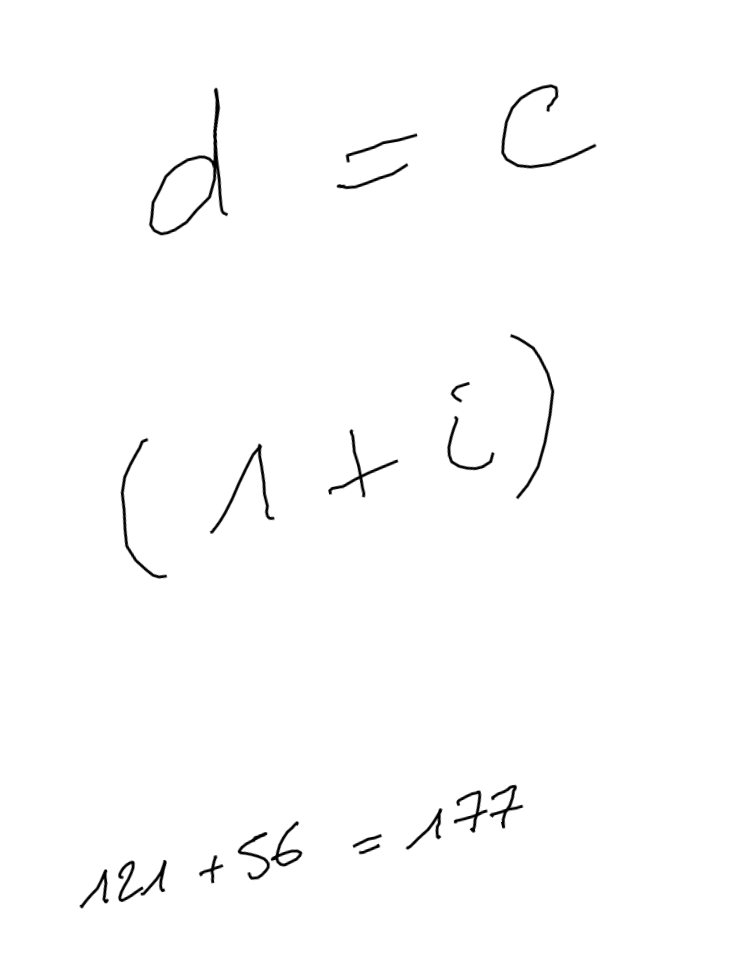 d = c
(1 + i)
121 + 56 = 177